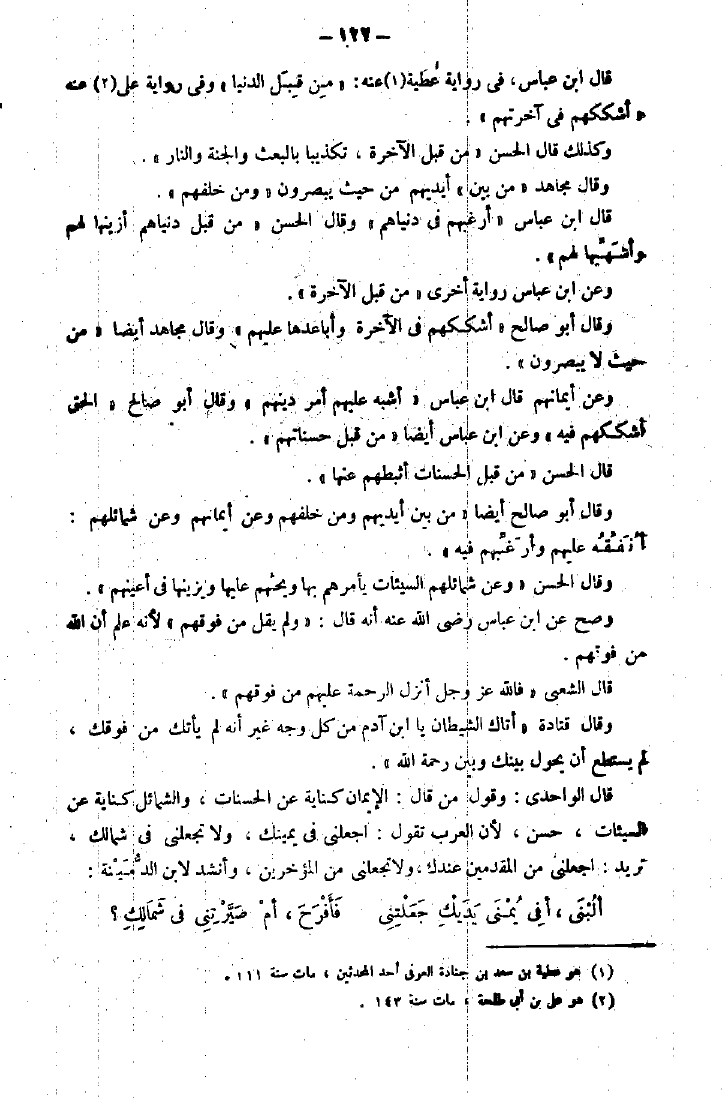 – ١٢٢ –
قال ابن عباس، فى رواية عُطَية(١)عنه: « مِن قِبَل الدنيا » وفى رواية على(٢) عنه
« أشككهم فى آخرتهم » .
وكذلك قال الحسن « من قبل الآخرة ، تكذيبا بالبعث والجنة والنار » .
وقال مجاهد « من بين » أيديهم من حيث يبصرون « ومن خلفهم » .
قال ابن عباس « أرغبهم فى دنياهم » وقال الحسن « من قبل دنياهم أزينها لهم
وأشهّيها لهم » .
وعن ابن عباس رواية أخرى « من قبل الآخرة » .
وقال أبو صالح « أشككهم فى الآخرة وأباعدها عليهم » وقال مجاهد أيضا « من
حيث لا يبصرون » .
وعن أيمانهم قال ابن عباس « أشبه عليهم أمر دينهم » وقال أبو صالح « الحق
أشككهم فيه » وعن ابن عباس أيضا « من قبل حسناتهم » .
قال الحسن « من قبل الحسنات أثبطهم عنها » .
وقال أبو صالح أيضا « من بين أيديهم ومن خلفهم وعن أيمانهم وعن شمائلهم :
أُنَفِّقُه عليهم وأرَغِّبهم فيه » .
وقال الحسن « وعن شمائلهم السيئات يأمرهم بها ويحثهم عليها ويزينها فى أعينهم » .
وصح عن ابن عباس رضى الله عنه أنه قال : « ولم يقل من فوقهم » لأنه علم أن الله
من فوقهم .
قال الشعبى « فالله عز وجل أنزل الرحمة عليهم من فوقهم » .
وقال قتادة « أتاك الشيطان يا ابن آدم من كل وجه غير أنه لم يأتك من فوقك ،
لم يستطع أن يحول بينك وبين رحمة الله » .
قال الواحدى : وقول من قال : الإيمان كناية عن الحسنات ، والشمائل كناية عن
السيئات ، حسن ، لأن العرب تقول : اجعلنى فى يمينك ، ولا تجعلنى فى شمالك ،
تريد : اجعلنى من المقدمين عندك، ولا تجعلنى من المؤخرين ، وأنشد لابن الدُّمَيْنة :
أَلُبْنَى ، أَفِى يُمْنَى يَدَيْكِ جَعَلْتِنِى فَأَفْرَحَ ، أمْ صَيَّرْتِنِى فى شَمَالِكِ ؟
(١) هو عطية بن سعد بن جنادة العوفى أحد المحدثين ، مات سنة ١١١ .
(٢) هو على بن أبى طلحة ، مات سنة ١٤٣ .